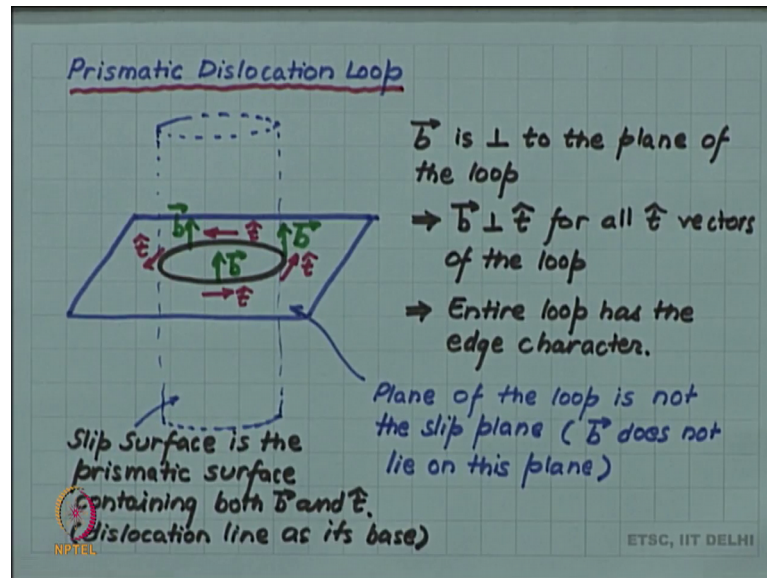 Prismatic Dislocation Loop
b⃗ is ⊥ to the plane of
the loop
⇒ b⃗ ⊥ t̂ for all t̂ vectors
of the loop
⇒ Entire loop has the
edge character.
b⃗ t̂ b⃗
t̂ b⃗ t̂
t̂
Plane of the loop is not
the slip plane ( b⃗ does not
lie on this plane)
Slip Surface is the
prismatic surface
containing both b⃗ and t̂.
(dislocation line as its base)
NPTEL
ETSC, IIT DELHI